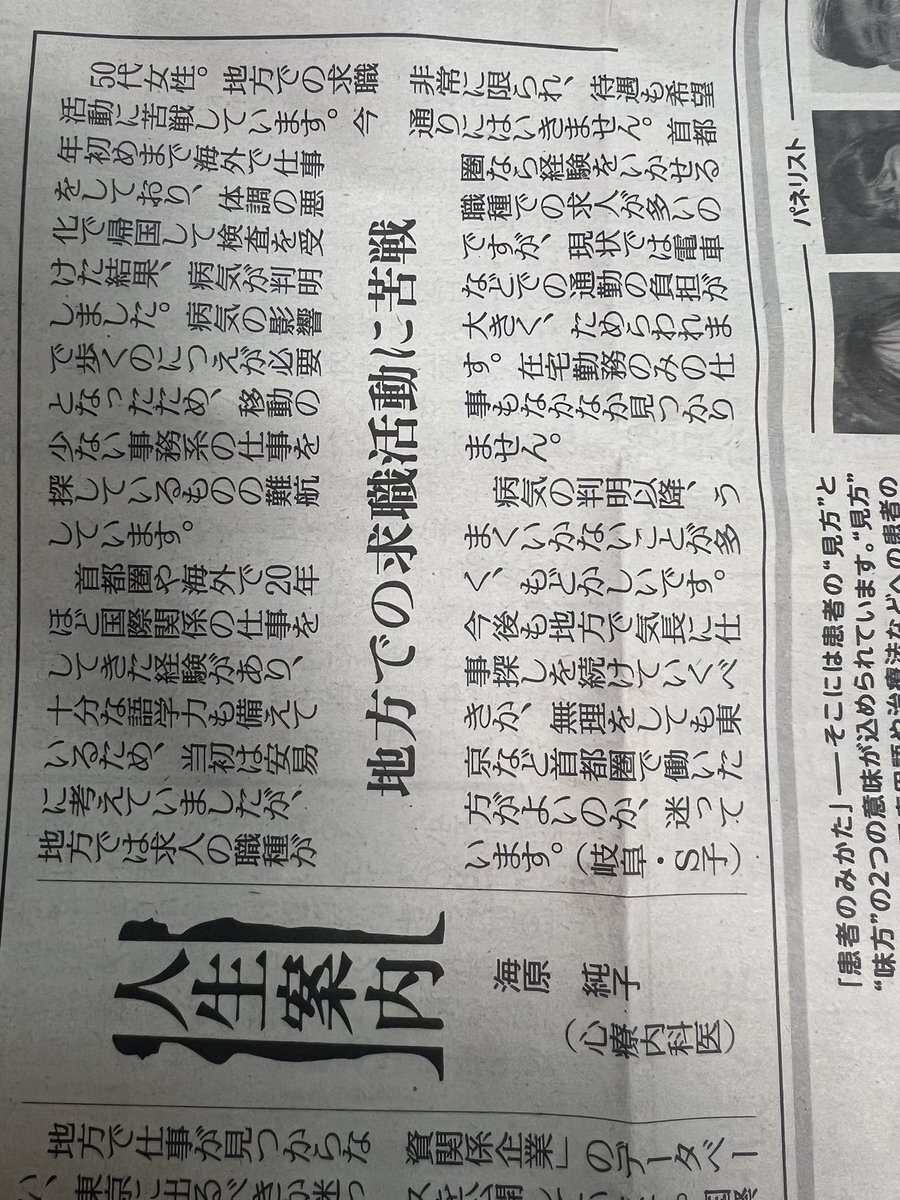 地方での求職活動に苦戦
50代女性。地方での求職
活動に苦戦しています。今
年初めまで海外で仕事
をしており、体調の悪
化で帰国して検査を受
けた結果、病気が判明
しました。病気の影響
で歩くのにつえが必要
となったため、移動の
少ない事務系の仕事を
探しているものの難航
しています。
首都圏や海外で20年
ほど国際関係の仕事を
してきた経験があり、
十分な語学力も備えて
いるため、当初は安易
に考えていましたが、
地方では求人の職種が
非常に限られ、待遇も希望
通りにはいきません。首都
圏なら経験をいかせる
職種での求人が多いの
ですが、現状では電車
などでの通勤の負担が
大きく、ためらわれま
す。在宅勤務のみの仕
事もなかなか見つかり
ません。
病気の判明以降、う
まくいかないことが多
く、もどかしいです。
今後も地方で気長に仕
事探しを続けていくべ
きか、無理をしても東
京など首都圏で働いた
方がよいのか、迷って
います。(岐阜・S子)
人生案内
海原 純子
(心療内科医)
地方で仕事が見つからな
い、東京に出るべきか迷っ
資関係企業」のデータベー
スを公開
パネリスト
「患者のみかた」――そこには患者の“見方”と
“味方”の2つの意味が込められています。“見方”
や治療法などへの患者の